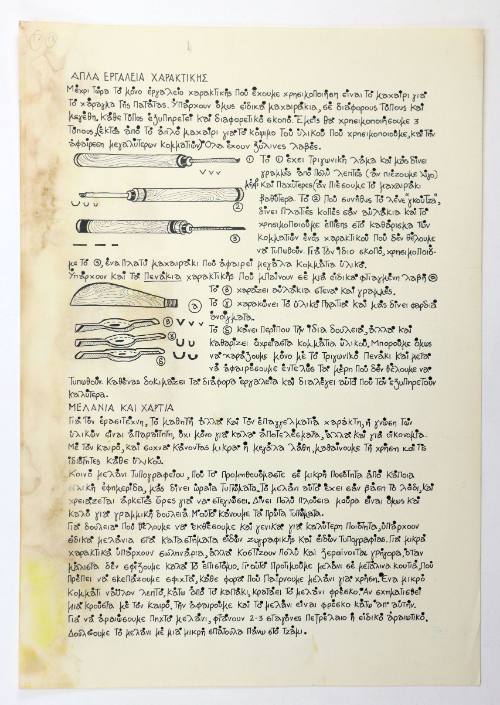 ΑΠΛΑ ΕΡΓΑΛΕΙΑ ΧΑΡΑΚΤΙΚΗΣ
Μέχρι τώρα το μόνο εργαλείο χαρακτικής που έχουμε χρησιμοποιήση είναι το μαχαίρι για
το χάραγμα της πατάτας. Υπάρχουν όμως ειδικά μαχαιράκια, σε διάφορους τύπους και
μεγέθη. Κάθε τύπος εξυπηρετεί και διαφορετικό σκοπό. Εμείς θα χρησιμοποιήσουμε 3
τύπους, (εκτός από το απλό μαχαίρι για το κόψιμο του υλικού που χρησιμοποιούμε, και την
αφαίρεση μεγαλύτερων κομματιών) Όλα έχουν ξύλινες λαβές.
① Το ① έχει τριγωνική λάμα και μας δίνει
γραμμές από πολύ λεπτές (αν πιέζουμε λίγο)
και παχύτερες (αν πιέσουμε το μαχαιράκι
βαθύτερα. Το ② που συνήθως το λένε "γκούτζα",
δίνει πλατιές κοπές σαν αυλάκια και το
χρησιμοποιούμε επίσης στο καθάρισμα των
κομματιών ενός χαρακτικού που δεν θέλουμε
να τυπωθούν. Για τον ίδιο σκοπό, χρησιμοποιού-
με το ③, ένα πλατύ μαχαιράκι που αφαιρεί μεγάλα κομμάτια υλικό.
Υπάρχουν και τα πενάκια χαρακτικής που μπαίνουν σε μια ειδικά φτιαγμένη λαβή
②
③
Το ④ χαράζει αυλάκια στενά και γραμμές.
Το ⑤ χαρακώνει το υλικό πλατιά και μας δίνει φαρδιά
ανοίγματα.
Το ⑥ κάνει περίπου την ίδια δουλειά, αλλά και
καθαρίζει αχρείαστα κομμάτια υλικού. Μπορούμε όμως
να χαράξουμε μόνο με το τριγωνικό πενάκι και μετά
να αφαιρέσουμε εντελώς τα μέρη που δεν θέλουμε να
τυπωθούν. Καθένας δοκιμάζει τα διάφορα εργαλεία και διαλέγει αυτά που τον εξυπηρετούν
καλύτερα.
ΜΕΛΑΝΙΑ ΚΑΙ ΧΑΡΤΙΑ
Για τον ερασιτέχνη, το μαθητή αλλά και τον επαγγελματία χαράκτη, η γνώση των
υλικών είναι απαραίτητη, όχι μόνο για καλά αποτελέσματα, αλλά και για οικονομία.
Με τον καιρό, και συχνά κάνοντας μικρά ή μεγάλα λάθη, μαθαίνουμε τη χρήση και τις
ιδιότητες κάθε υλικού.
Κοινό μελάνι τυπογραφείου, που το προμηθευόμαστε σε μικρή ποσότητα από κάποια
τοπική εφημερίδα, μας δίνει ωραία τυπώματα. Το μελάνι αυτό έχει σαν βάση το λάδι, και
χρειάζεται αρκετές ώρες για να στεγνώσει. Δίνει πολύ πλούσια μαύρα είναι όμως και
καλό για γραμμική δουλειά. Μ'αυτό κάνουμε τα πρώτα τυπώματα.
Για δουλειά που θέλουμε να εκθέσουμε και γενικά για καλύτερη ποιότητα, υπάρχουν
ειδικά μελάνια στα καταστήματα ειδών ζωγραφικής και ειδών τυπογραφίας. Για μικρά
χαρακτικά υπάρχουν σωληνάρια, αλλά κοστίζουν πολύ και ξεραίνονται γρήγορα, όταν
μάλιστα δεν σφίξουμε καλά το επίστομο. Γι'αυτό προτιμούμε μελάνι σε μετάλινα κουτιά, που
πρέπει να σκεπάζουμε σφιχτά, κάθε φορά που παίρνουμε μελάνι για χρήση. Ένα μικρό
κομμάτι νάυλον λεπτό, κάτω από το καπάκι, κρατάει το μελάνι φρέσκο. Αν σχηματισθεί
μια κρούστα με τον καιρό, την αφαιρούμε και το μελάνι είναι φρέσκο κάτω απ' αυτήν.
Για να αραιώσουμε πηχτό μελάνι, φτάνουν 2-3 σταγόνες πετρέλαιο ή ειδικό αραιωτικό.
Δουλεύουμε το μελάνι με μια μικρή σπάτουλα πάνω στο τζάμι.